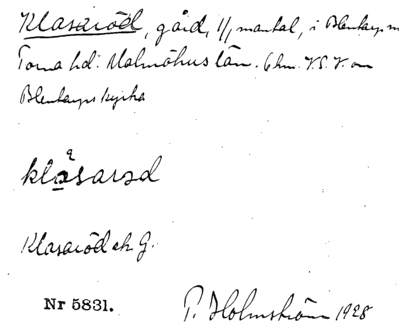 Klasaröd, gård, 1/1 mantal, i Blentarps
Torna hd. Malmöhus län. 6 km. V.S.V. om
Blentarps kyrka
klåsarød
Klasaröd ek. G.
Nr 5831.
P. Holmström 1928